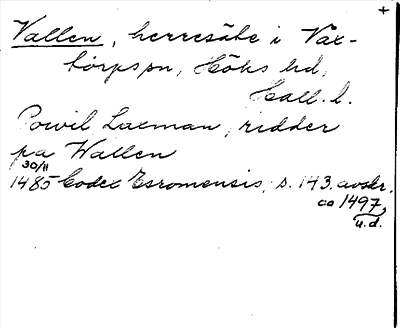 +
Vallen, herresäte i Väx-
torps sn, Höks hd,
Hall. l.
Powil Laxman, ridder
pa Wallen
30/11
1485 Codex Esromensis, s. 143. avskr.
ca 1497,
u.d.